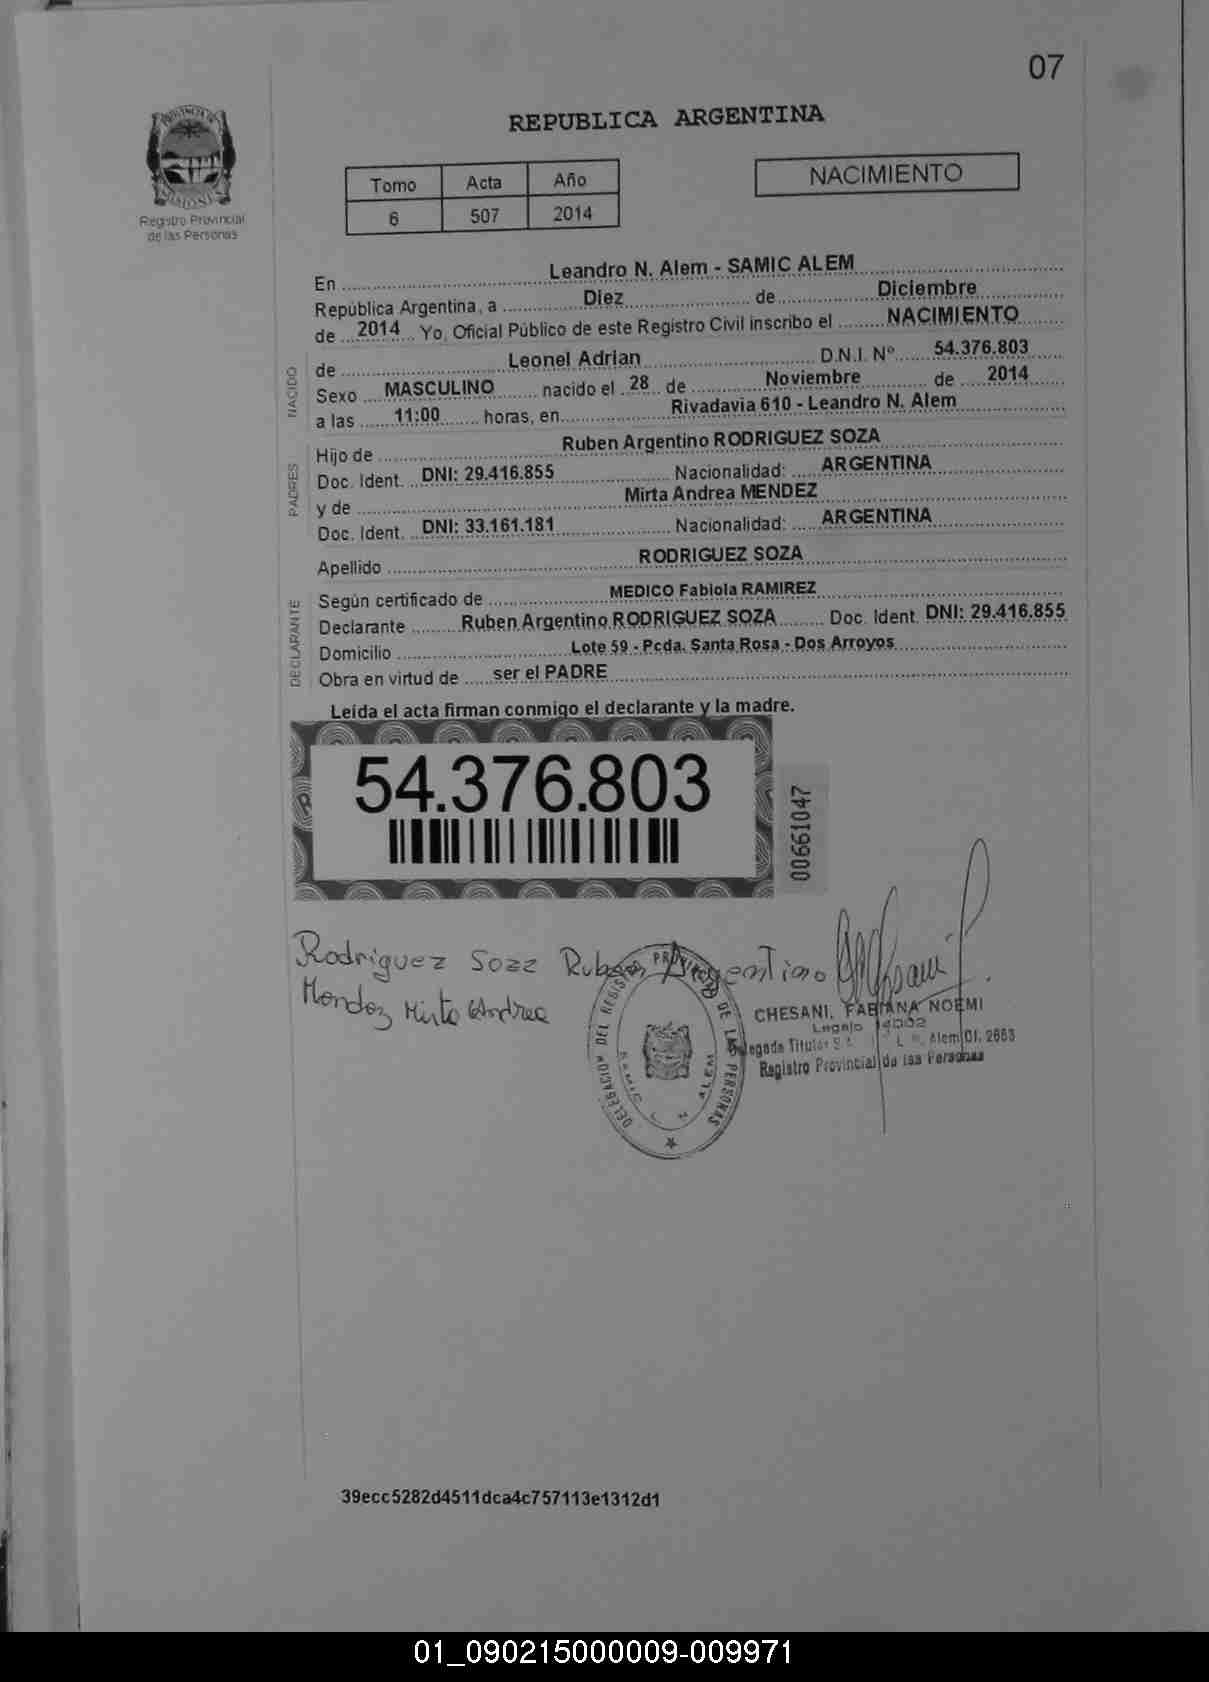 07
REPUBLICA ARGENTINA
Registro Provincial
de las Personas
Tomo Acta Año
6 507 2014
NACIMIENTO
En Leandro N. Alem - SAMIC ALEM
República Argentina, a Diez de Diciembre
de 2014 Yo, Oficial Público de este Registro Civil inscribo el NACIMIENTO
NACIDO
de Leonel Adrian D.N.I. Nº 54.376.803
Sexo MASCULINO nacido el 28 de Noviembre de 2014
a las 11:00 horas, en Rivadavia 610 - Leandro N. Alem
PADRES
Hijo de Ruben Argentino RODRIGUEZ SOZA
Doc. Ident. DNI: 29.416.855 Nacionalidad: ARGENTINA
y de Mirta Andrea MENDEZ
Doc. Ident. DNI: 33.161.181 Nacionalidad: ARGENTINA
Apellido RODRIGUEZ SOZA
DECLARANTE
Según certificado de MEDICO Fabiola RAMIREZ
Declarante Ruben Argentino RODRIGUEZ SOZA Doc. Ident. DNI: 29.416.855
Domicilio Lote 59 - Pcda. Santa Rosa - Dos Arroyos
Obra en virtud de ser el PADRE
Leida el acta firman conmigo el declarante y la madre.
54.376.803
00661047
Rodriguez Soza Ruben Argentino
Mendez Mirta Andrea
DELEGACION DEL REGISTRO PROVINCIAL DE LAS PERSONAS
SAMIC L. N. ALEM
CHESANI, FABIANA NOEMI
Legajo
Delegada Titular L. N. Alem Of. 2663
Registro Provincial de las Personas
39ecc5282d4511dca4c757113e1312d1
01_090215000009-009971